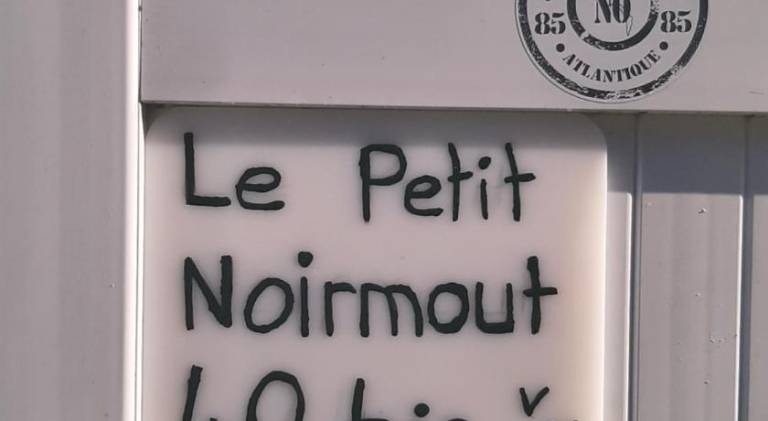 NO
85 85
• ATLANTIQUE •
Le Petit
Noirmout